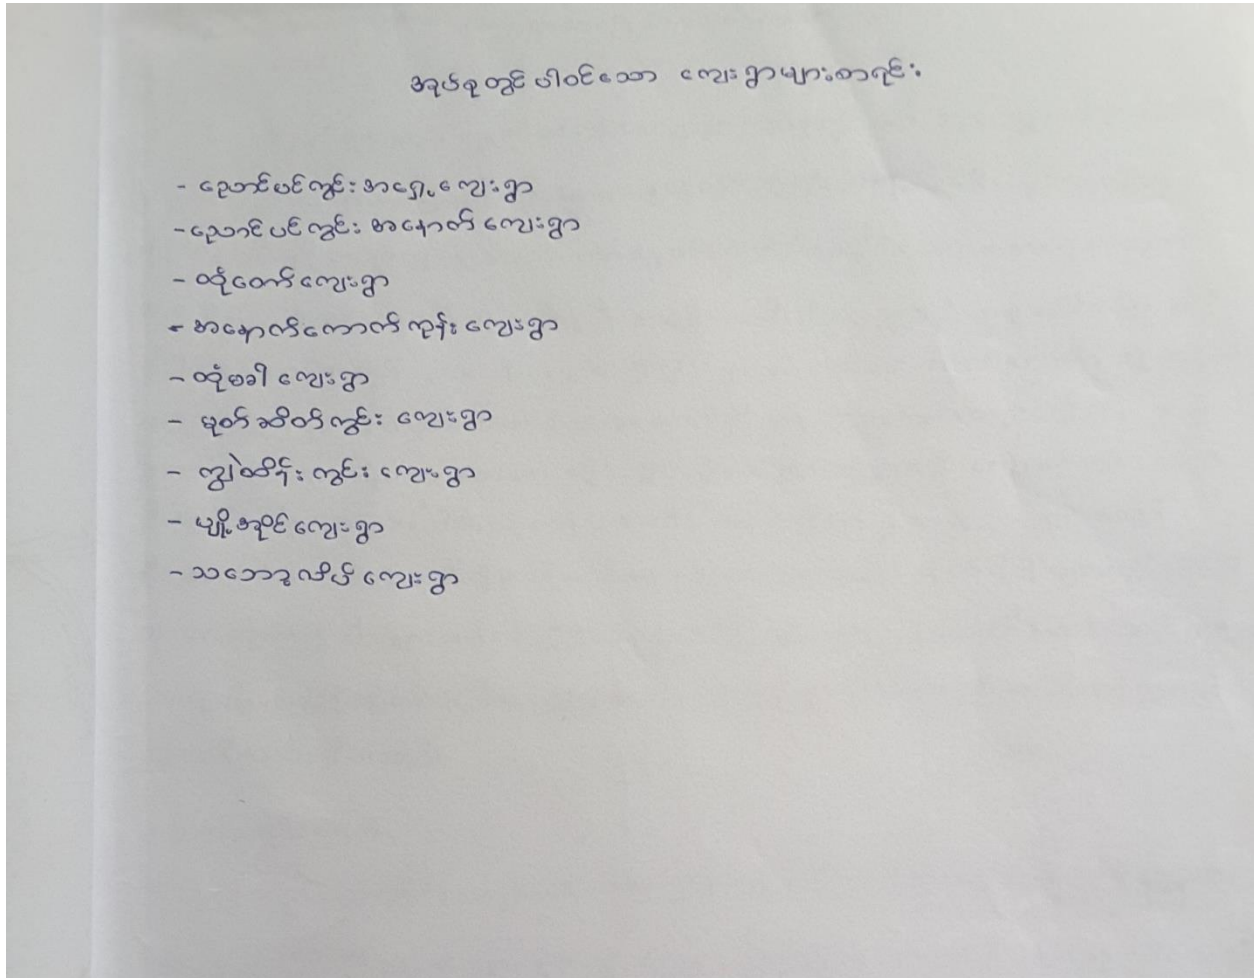 အုပ်စုတွင်ပါဝင်သော ကျေးရွာများစာရင်း
- ညောင်ပင်ကွင်းအရှေ့ကျေးရွာ
- ညောင်ပင်ကွင်းအနောက်ကျေးရွာ
- ထုံတောက်ကျေးရွာ
- အနောက်ကောက်ကုန်းကျေးရွာ
- ထုံဗခါကျေးရွာ
- မုတ်ဆိတ်ကွင်းကျေးရွာ
- ကျွဲထိန်းကွင်းကျေးရွာ
- ပျိုးအိုင်ကျေးရွာ
- သဘောလိပ်ကျေးရွာ